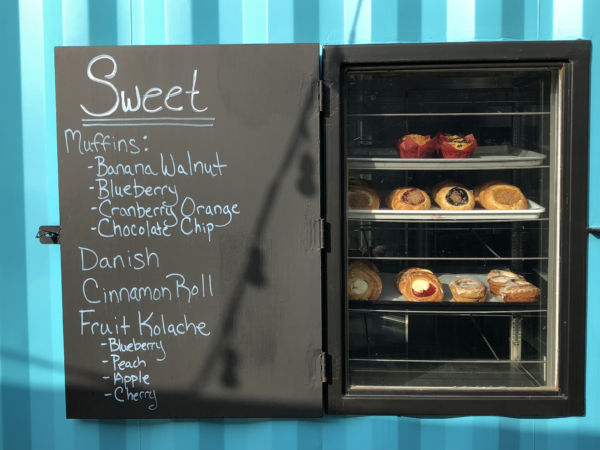 Sweet
Muffins:
-Banana Walnut
-Blueberry
-Cranberry Orange
-Chocolate Chip
Danish
Cinnamon Roll
Fruit Kolache
-Blueberry
-Peach
-Apple
-Cherry